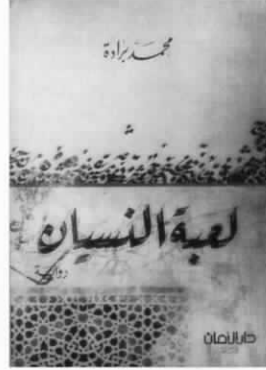 محمد برادة
لعبة النسيان
رواية
دار الأمان